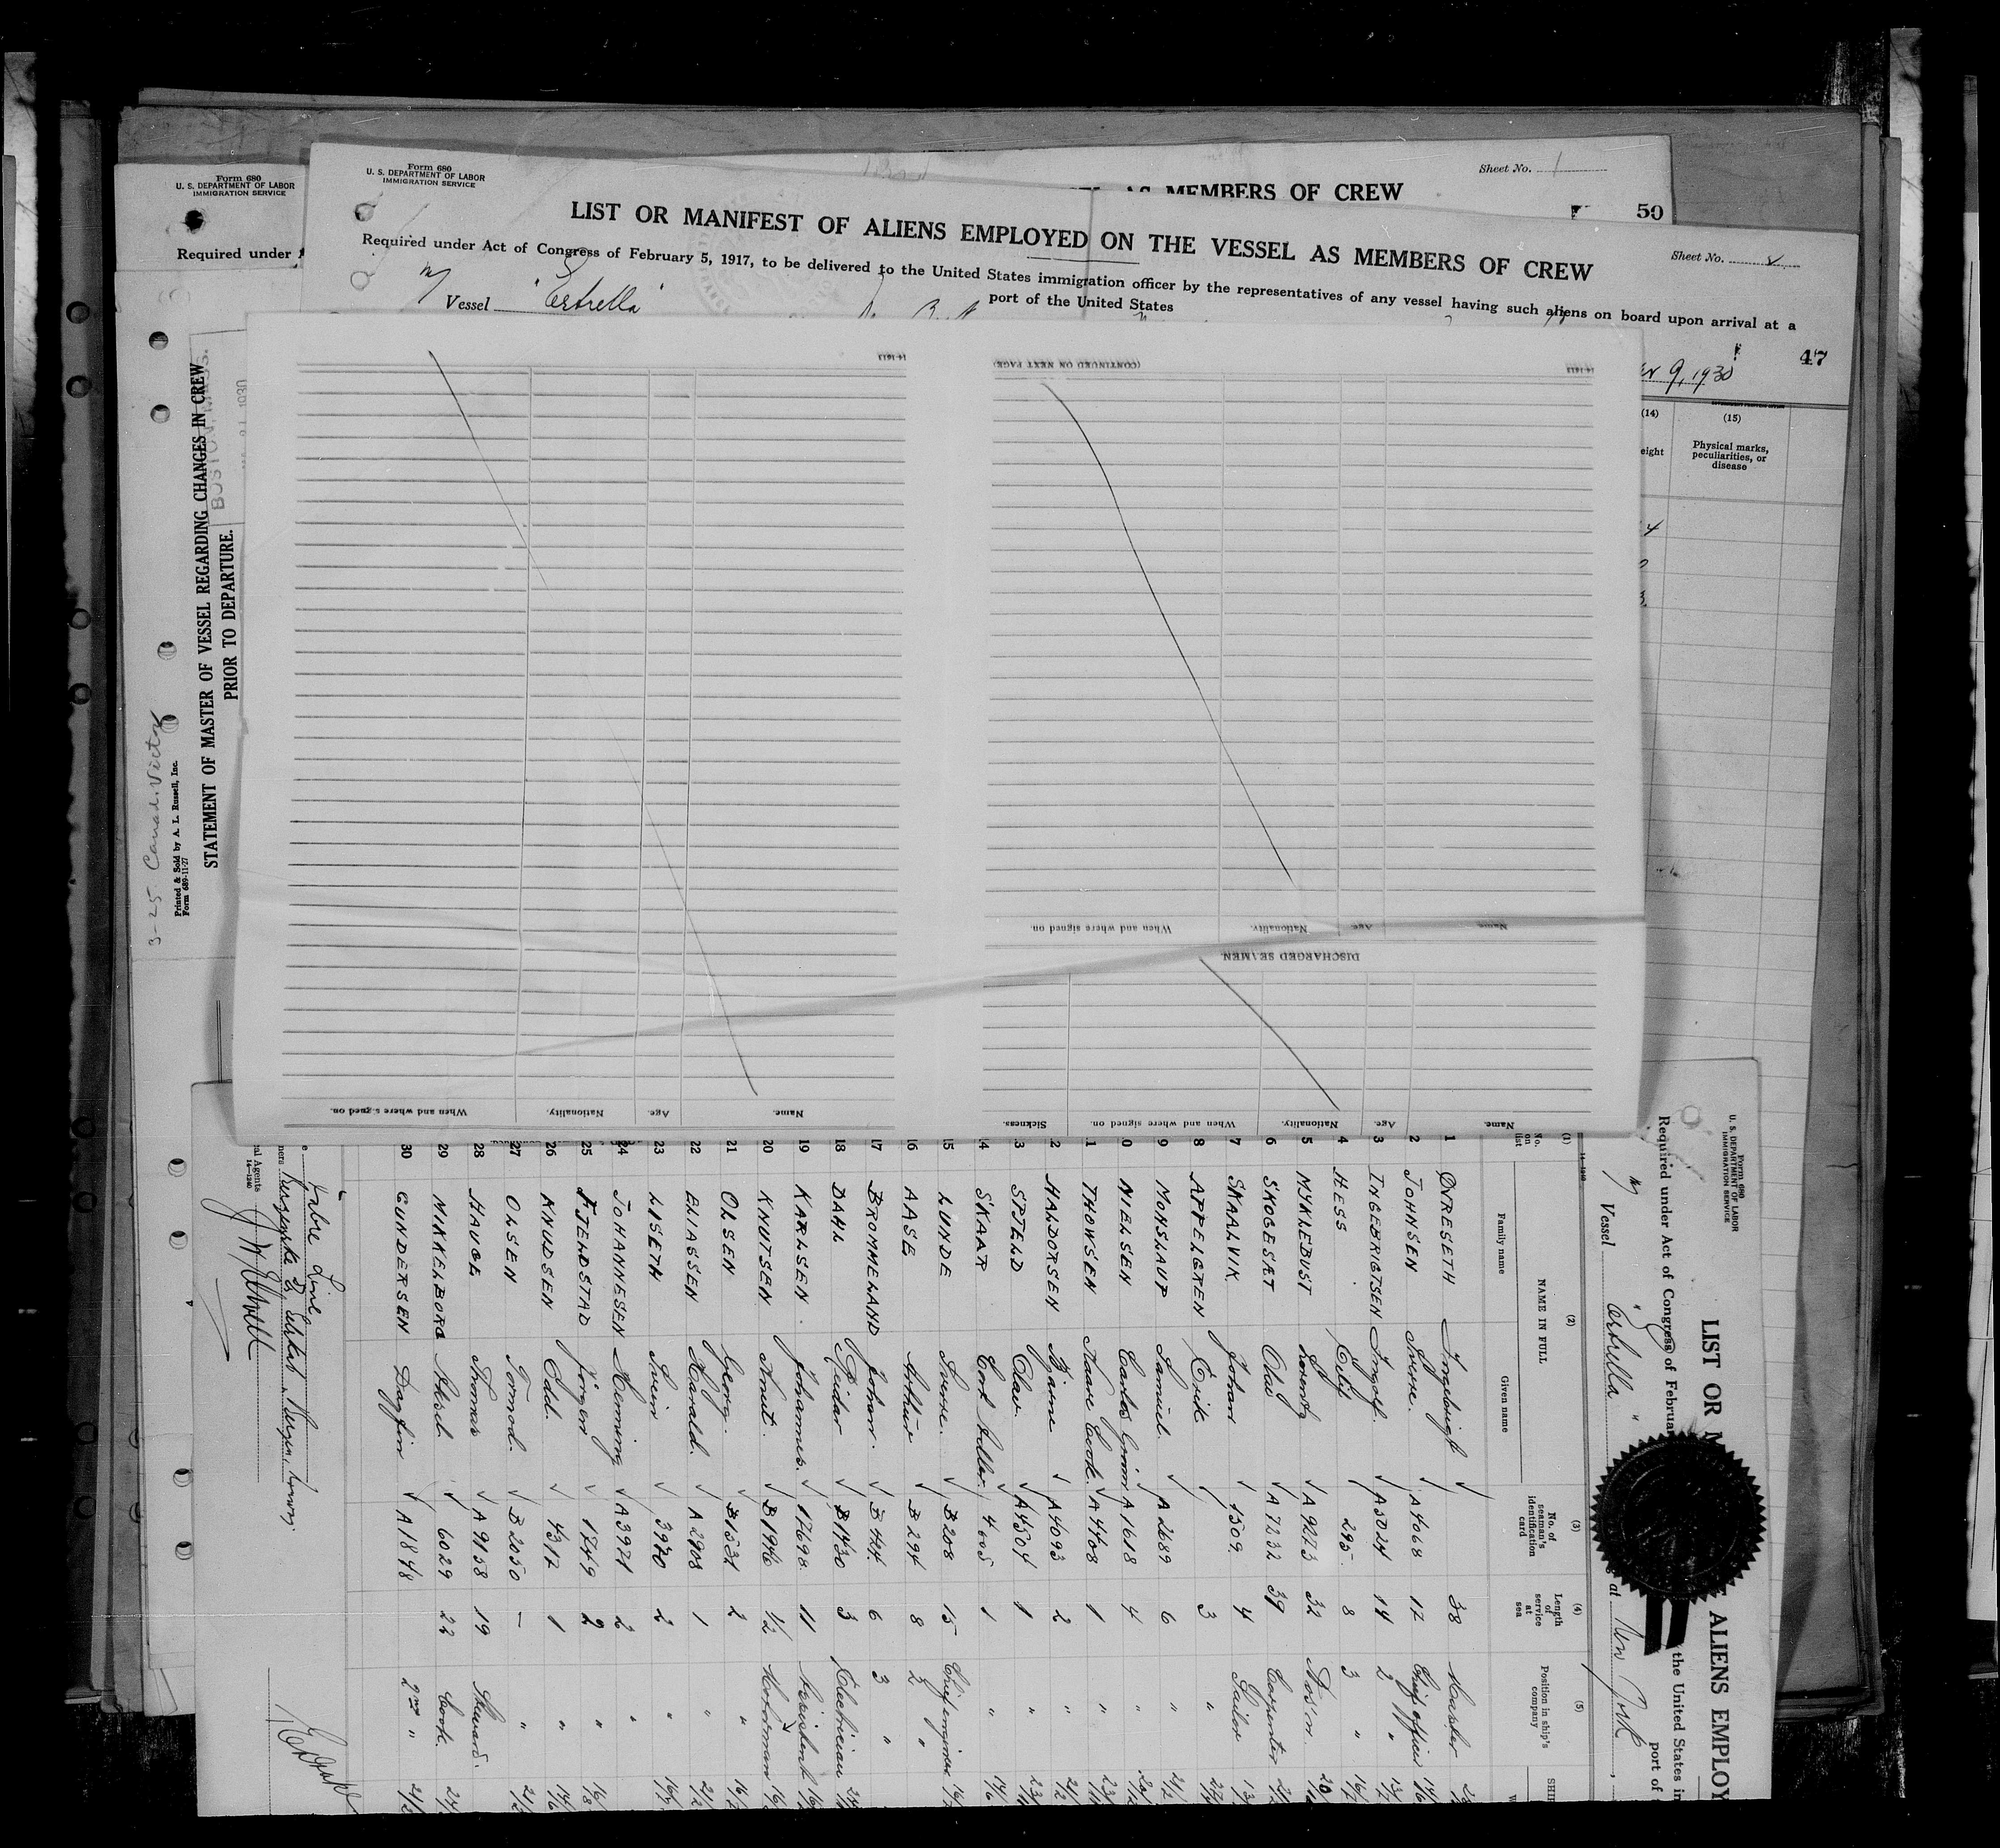 Form 680
U. S. DEPARTMENT OF LABOR
IMMIGRATION SERVICE
Required under
Form 680
U. S. DEPARTMENT OF LABOR
IMMIGRATION SERVICE
AS MEMBERS OF CREW
Sheet No. 1
50
LIST OR MANIFEST OF ALIENS EMPLOYED ON THE VESSEL AS MEMBERS OF CREW
Sheet No.
Required under Act of Congress of February 5, 1917, to be delivered to the United States immigration officer by the representatives of any vessel having such aliens on board upon arrival at a
port of the United States
Vessel "Estrella"
9, 1930
47
(14) (15)
eight Physical marks, peculiarities, or disease
STATEMENT OF MASTER OF VESSEL REGARDING CHANGES IN CREW
PRIOR TO DEPARTURE.
BOSTON, MASS.
1930
Printed & Sold by A. L. Russell, Inc.
Form 689-11-27
3-25 Canad. Victor
14-1613
(CONTINUED ON NEXT PAGE)
14-1613
When and where signed on. Nationality. Age. Name.
DISCHARGED SEAMEN.
When and where signed on. Nationality. Age. Name.
Sickness. When and where signed on. Nationality. Age. Name.
Form 680
U. S. DEPARTMENT OF LABOR
IMMIGRATION SERVICE
LIST OR M
ALIENS EMPLOY
Required under Act of Congress of Februar
the United States in
port of
Vessel "Estrella"
at New York
14-1240
(1) (2) (3) (4) (5)
No. on list NAME IN FULL No. of seaman's identification card Length of service at sea Position in ship's company SHIP
Family name Given name
1 ØVRESETH Ingebrigt 38 Master
2 JOHNSEN Sverre. A4068 17 Chief officer
3 INGEBRIGTSEN Ingolf. A5024 14 2 "
4 HESS 295. 8 3 "
5 MYKLEBUST Lorentz A9273 32 Bos'n
6 SKOGESÆT Olav A7232 39 Carpenter
7 SKAALVIK. Johan 1509. 4 Sailor
8 APPELGREN Erik 3 "
9 MOHSLAUP Samuel. A2689 6 "
10 NIELSEN Carlos Grimm A1618 4 "
11 THOWSEN Kaare Cook. A4408 1 "
12 HALDORSEN Bjarne A4093 2 "
13 SPJELD Olav. A4504 1 "
14 SKAAR 4005 1 "
15 LUNDE Sverre. B208 15 Chief engineer
16 AASE Arthur B294 8 2 "
17 BROMMELAND Johan. B424. 6 3 "
18 DAHL Reidar B1430 3 Electrician
19 KARLSEN. Johannes. 17698. 11 Assistent
20 KNUTSEN Knut. B1946 1/2 Motorman
21 OLSEN Georg. B1531 2 "
22 ELIASSEN Harald. A2908 1 "
23 LISETH Svein 3970 2 "
24 JOHANNESEN Henning A3971 2 "
25 FJELDSTAD Jörgen 1749 2 "
26 KNUDSEN Odd. 4317 1 "
27 OLSEN Tormod. B2050 - "
28 HAUGE Thomas A9158 19 Steward.
29 MIKKELBORG Aksel. 6029 22 Cook.
30 GUNDERSEN Dagfin A1848 2nd "
Line
Bergen, Norway
14-1240